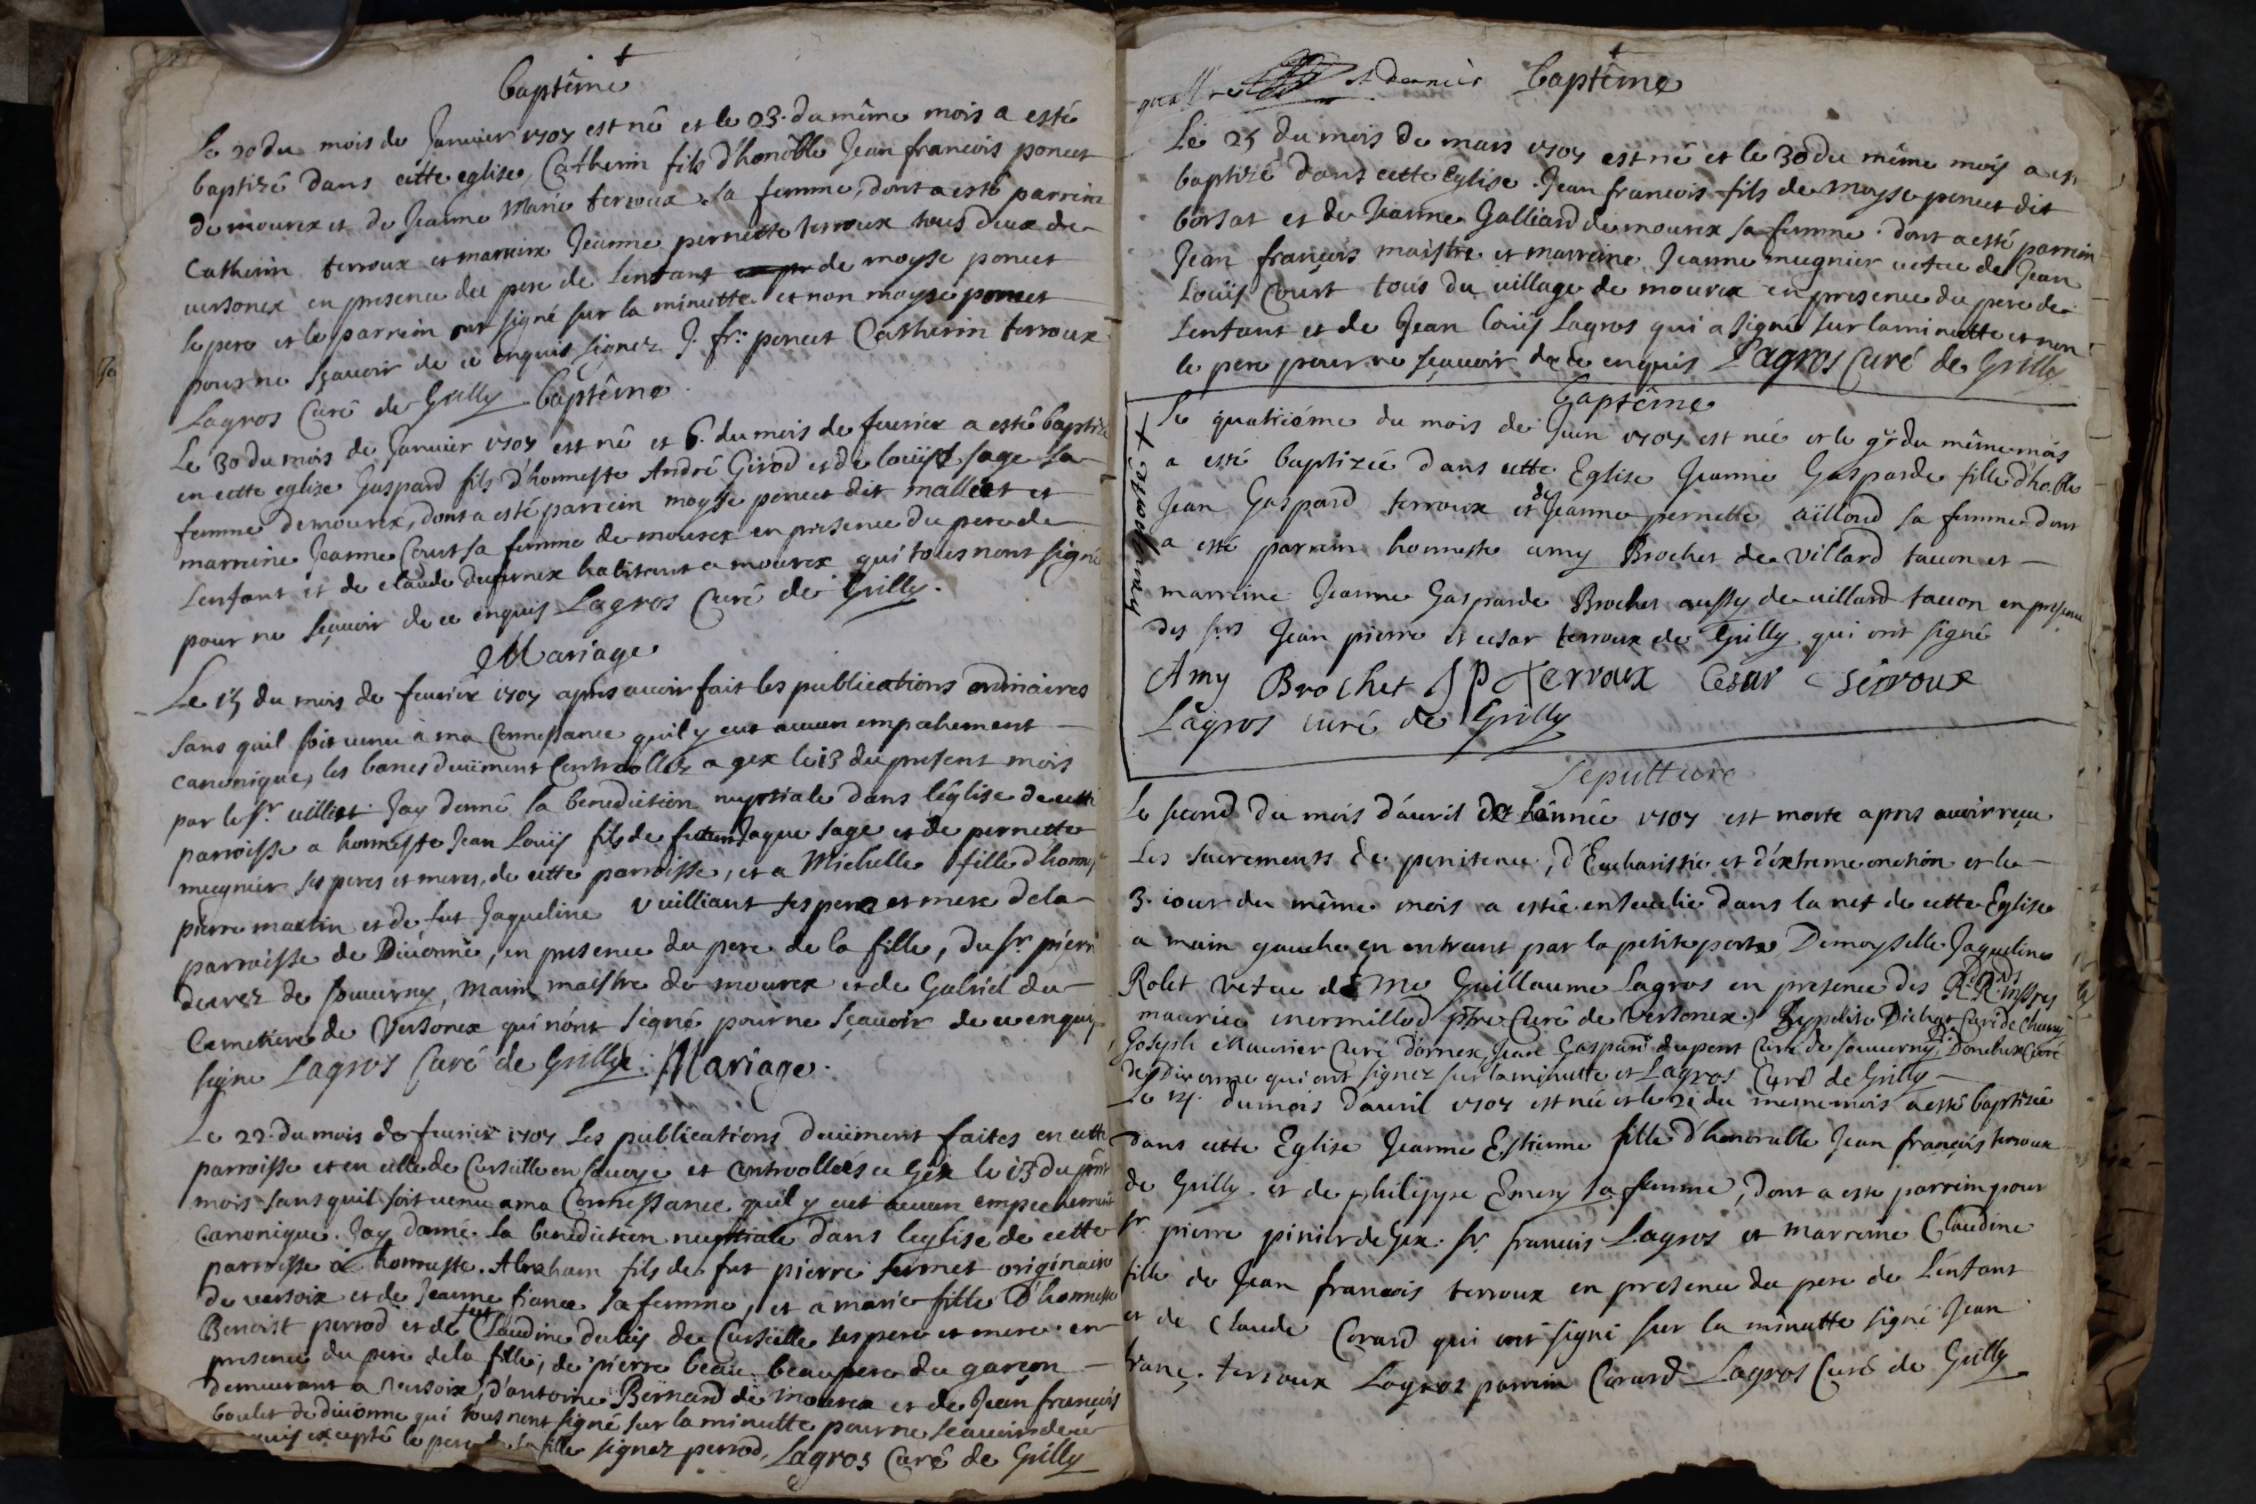 Baptême
Le 20 du mois de Janvier 1707 est né et le 23. du même mois a esté
baptizé dans cette eglise Catherin fils d'honoble Jean francois poncet
de mourex et de Jeanne Marie terroux sa femme, dont a esté parrein
Catherin terroux et marreine Jeanne pernette terroux tous deux de
versonex en presence du pere de Lenfant de moyse poncet
le pere et le parrein ont signé sur la minutte et non moyse poncet
pour ne sçavoir de ce enquis signez J. fr: poncet Catherin terroux
Lagros Curé de Grilly Baptême
Le 30 du mois de Janvier 1707 est né et 6. du mois de feurier a esté baptizé
en cette eglise Gaspard fils d'honneste André Girod et de loüise sage sa
femme de mourex, dont a esté parrein moyse poncet dit mallet et
marreine Jeanne Court sa femme de mourex en presence du pere de
Lenfant et de claude habitant a mourex qui tous nont signé
pour ne sçavoir de ce enquis Lagros Curé de Grilly.
Mariage
Le 15 du mois de feurier 1707 apres auoir fait les publications ordinaires
sans quil soit venu à ma Connessance quil y eut aucun empechement
canonique, les bancs duüment Controollez a gex le 13 du present mois
par le sr. Jay donné la benediction nuptiale dans l'église de cette
parroisse a honneste Jean Louïs fils de Jaque sage et de pernette
meugnier ses peres et meres, de cette parroisse, et a Michelle fille d'honneste
pierre martin et de fut Jaqueline vuilliant ses pere et mere de la
parroisse de Diuonne, en presence du pere de la fille, du sr. pierre
de souuerny, maistre de mourex et de Gabriel du
Cemetiere de Versonex qui n'ont signé pour ne sçauoir de ce enquis
signe Lagros Curé de Grilly. Mariage.
Le 22. du mois de feurier 1707 Les publications deuëment faites en cette
parroisse et en celle de en sauoye et Controollées a Gex le 13 du pñt
mois sans quil soit venu a ma Connessance quil y eut aucun empechement
canonique. Jay donné la benediction nuptiale dans leglise de cette
parroisse à honneste. Abraham fils de fut pierre originaire
de versoix et de Jeanne sa femme, et a marie fille d'honneste
Benoist perrod et de fut Claudine de ses pere et mere. en
presence du pere de la fille, de pierre beau beaupere du garçon
demeurant a versoix, d'antoine Bernard de mourex et de Jean françois
boulet de diuonne qui tous nont signé sur la minutte pour ne sçauoir de ce
excepté le pere de la fille signez perrod, Lagros Curé de Grilly
st dernier Baptême
Le 25 du mois de mars 1707 est né et le 30 du même mois a esté
baptizé dans cette Eglise. Jean francois fils de moyse poncet dit
borsat et de Jeanne Galliard de mourex sa femme. dont a esté parrein
Jean francois maistre et marreine Jeanne meugnier vefue de Jean
Loüis Court tous du village de mourex en presence du pere de
Lenfant et de Jean loüis Lagros qui a signé sur la minutte et non
le pere pour ne sçauoir de ce enquis Lagros Curé de Grilly
Baptême
transposé X
Le quatrième du mois de Juin 1707 est née et le 9e du même mois
a esté baptizée dans cette Eglise Jeanne Gasparde fille d'ho.ble
Jean Gaspard terroux et de Jeanne pernette aïlloud sa femme dont
a esté parrain honneste amy Brochet de Villard tacon et
marreine Jeanne Gasparde Brochet aussy de uillard tacon en presence
des srs Jean pierre et cesar terroux de Grilly qui ont signé
Amy Brochet JP Terroux Cesar Terroux
Lagros curé de Grilly
Sepulture
Le second du mois d'auril de Lannée 1707 est morte apres auoir reçu
Les sacrements de penitence, d'Eucharistie et d'extreme onction et le
3. iour du même mois a estée enseuelie dans la nef de cette Eglise
a main gauche en entrant par la petite porte Demoyselle Jaqueline
Rolet vefue de Me Guillaume Lagros en presence des Rds
maurice mermillod ptre Curé de Versonex, Curé de
Joseph maurier Curé d'ornex, Jean Gaspard dupont Curé de souuerny, Curé
de diuonne qui ont signez sur la minutte et Lagros Curé de Grilly
Le 17. du mois dauril 1707 est née et le 21 du mesme mois a esté baptizée
dans cette Eglise Jeanne Estienne fille d'honorable Jean françois terroux
de Grilly et de philippe Emery sa femme, dont a este parrein pour
sr. pierre pinier de Gex. sr. francois Lagros et marreine Claudine
fille de Jean francois terroux en presence du pere de Lenfant
et de Claude Corard qui ont signé sur la minutte signé Jean
franç. terroux Lagros parrein Corard Lagros Curé de Grilly